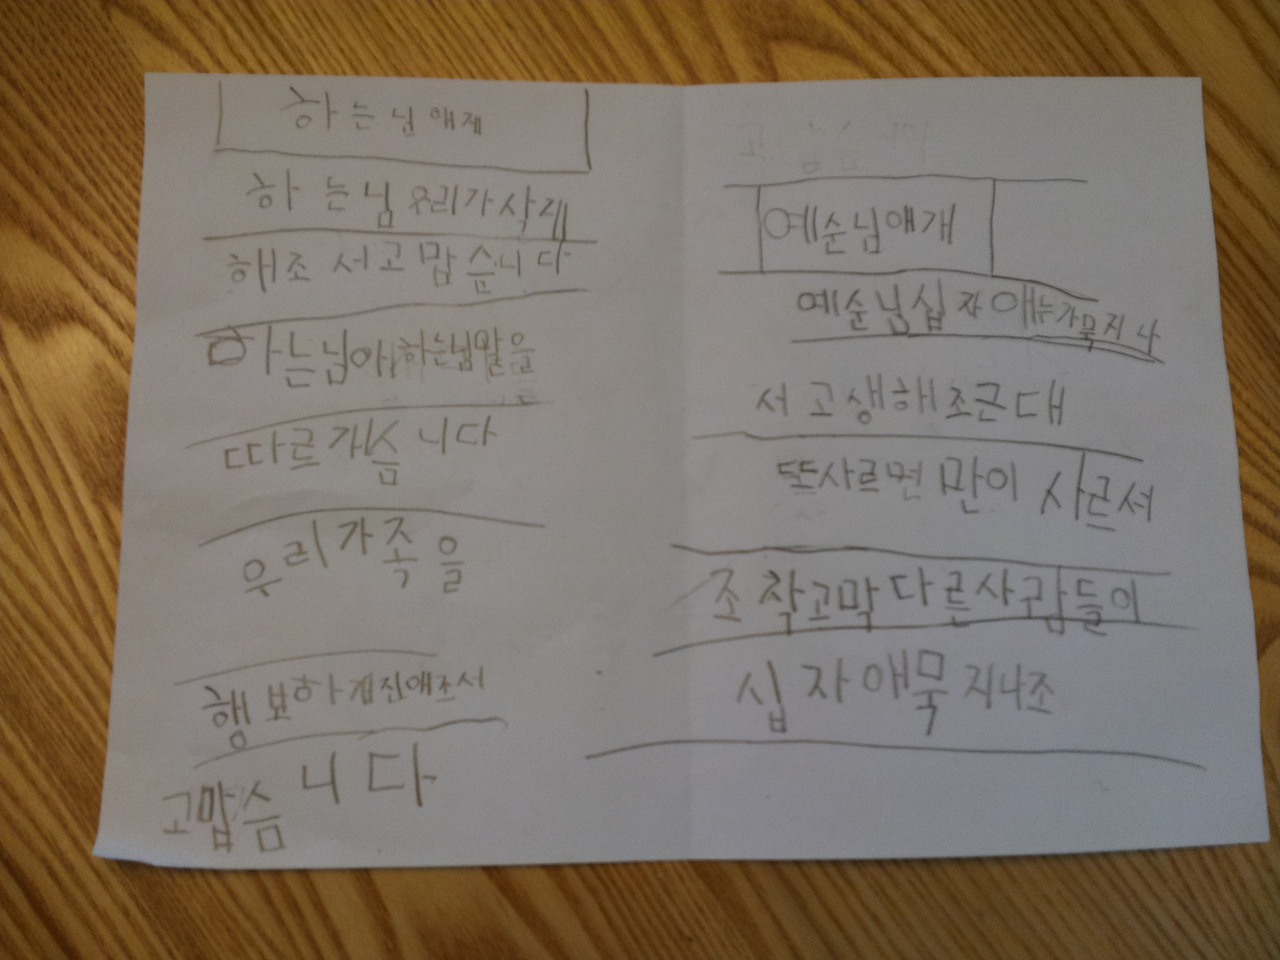 하는님애게
하는님 우리가 삭게
해조서고맙습니다
하는님아 하는님말을
따르개습니다
우리가족을
행보하개진애조서
고맙습니다
예순님애개
예순님십자애누가묵지나
서고생해조근대
또사르면만이사르셔
조착고막다른사람들이
십자애묵지나조